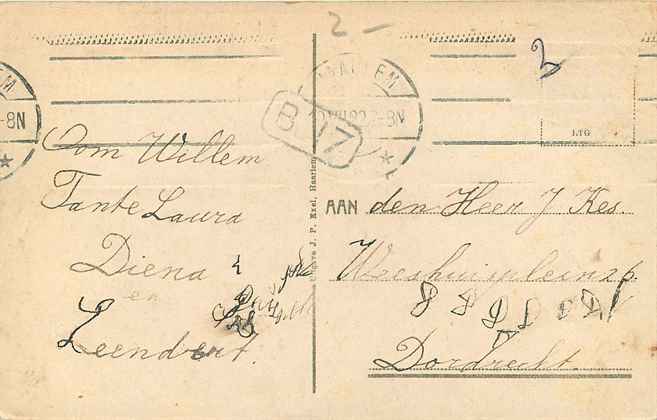 2 -
2
HAARLEM
8N
8N
B 07
LTG
Oom Willem
Tante Laura
Diena
en
Leendert.
Uitgave J. P. Exel, Haarlem
AAN den Heer J Kes.
Weeshuisplein 26.
Dordrecht